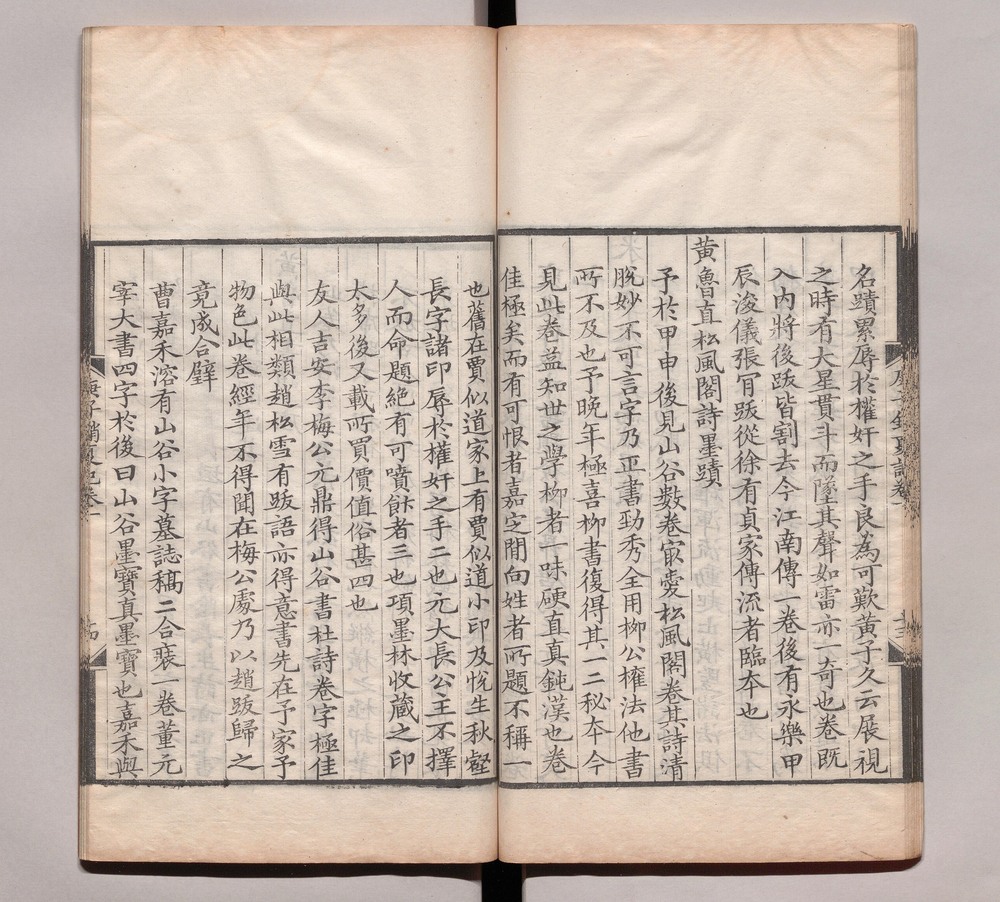 名蹟累辱於權奸之手良為可歎黃子久云展視
之時有大星貫斗而墜其聲如雷亦一奇也卷既
入內將後跋皆割去今江南傳一卷後有永樂甲
辰浚儀張肎跋從徐有貞家傳流者臨本也
黃魯直松風閣詩墨蹟
予於甲申後見山谷数卷㝡愛松風閣卷其詩清
脫妙不可言字乃正書勁秀全用柳公權法他書
所不及也予晚年極喜柳書復得其一二秘本今
見此卷益知世之學柳者一味硬直真鈍漢也卷
佳極矣而有可恨者嘉定閒向姓者所題不稱一
也舊在賈似道家上有賈似道小印及悅生秋壑
長字諸印辱於權奸之手二也元大長公主不擇
人而命題絕有可噴飯者三也項墨林收藏之印
太多後又載所買價值俗甚四也
友人吉安李梅公元鼎得山谷書杜詩卷字極佳
與此相類趙松雪有跋語亦得意書先在予家予
物色此卷經年不得聞在梅公處乃以趙跋歸之
竟成合璧
曹嘉禾溶有山谷小字墓誌稿二合裝一卷董元
宰大書四字於後曰山谷墨寶真墨寶也嘉禾與
庚子銷夏記卷一